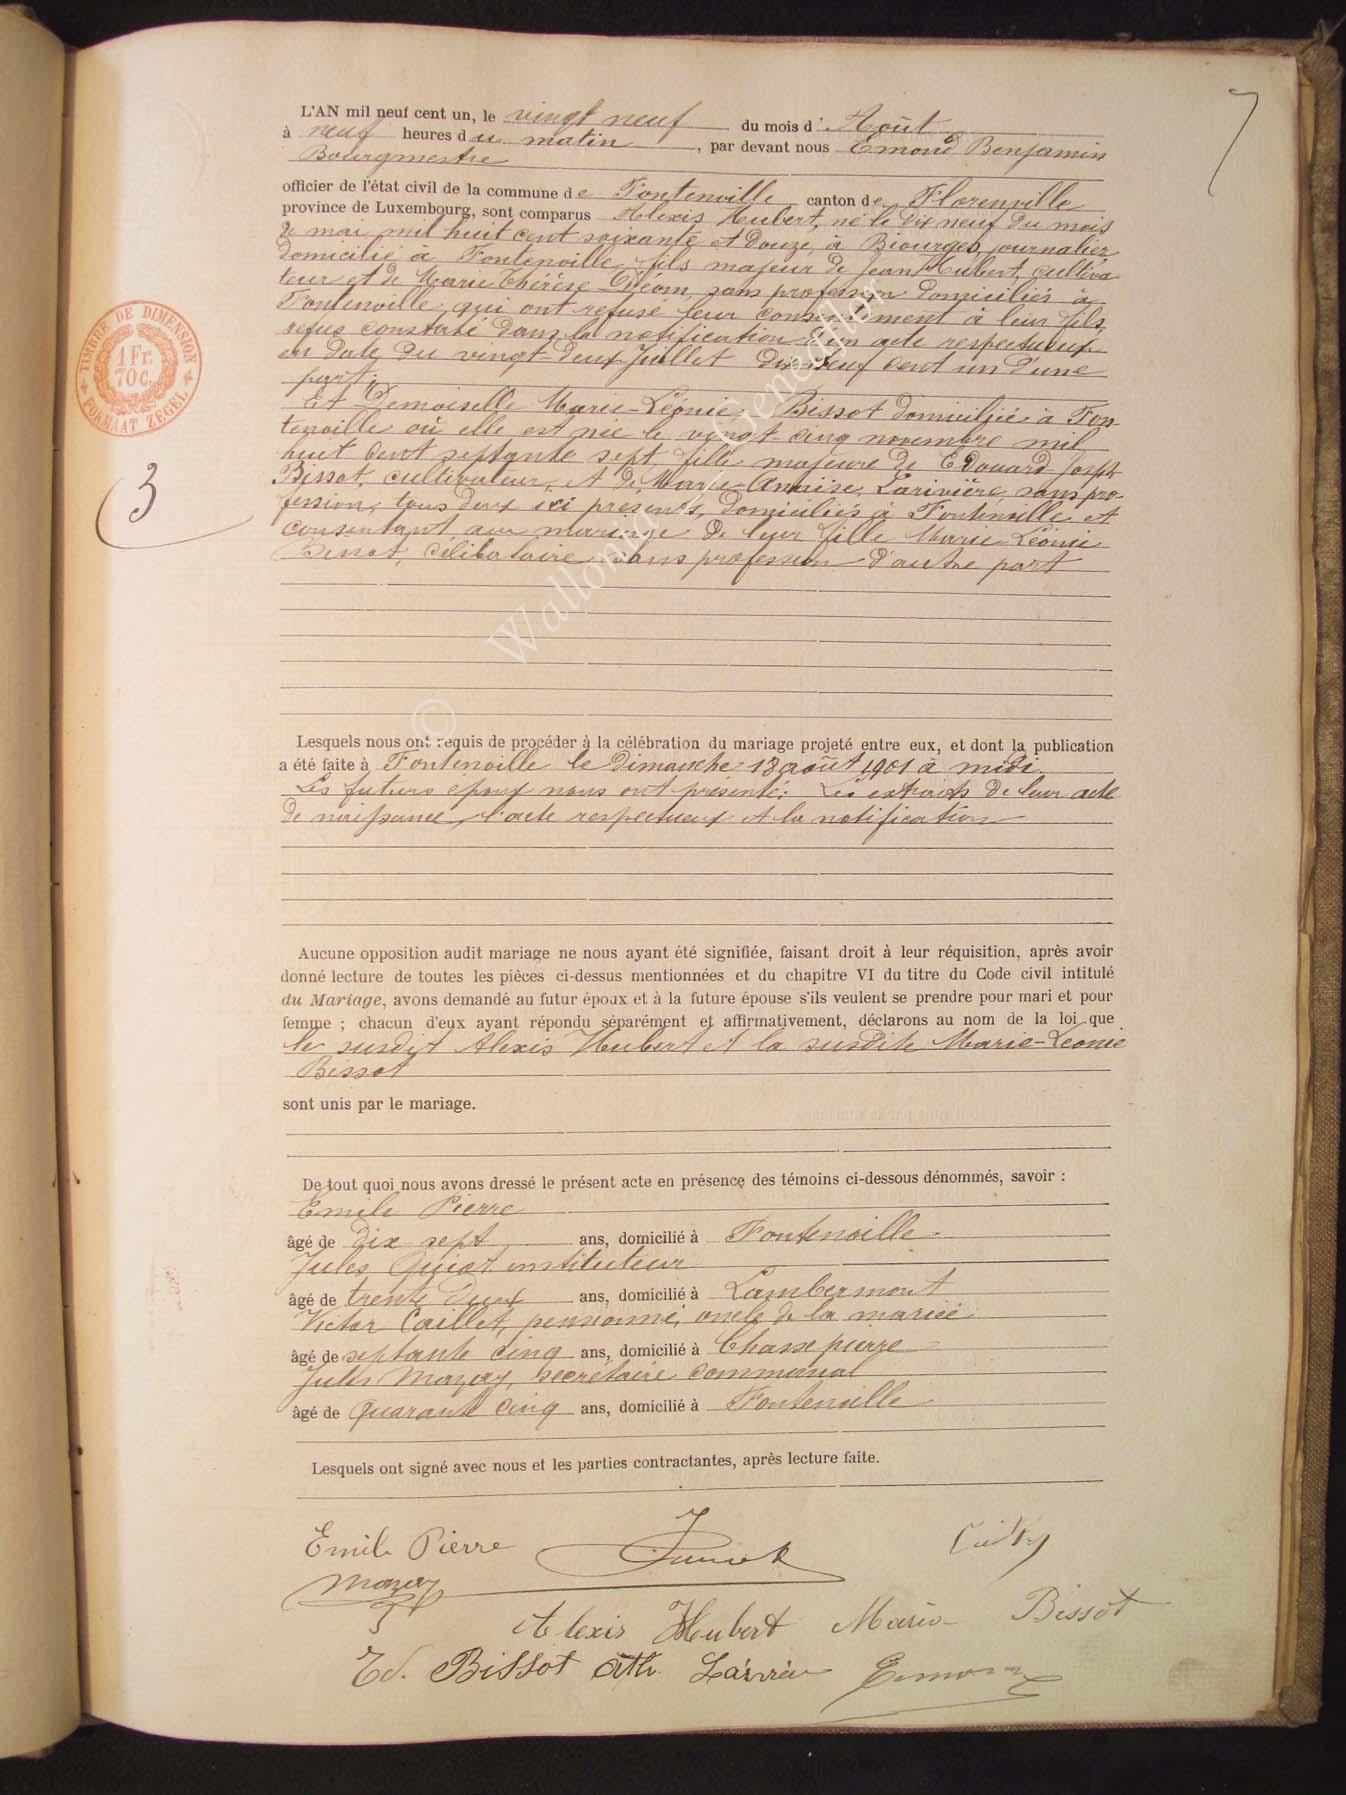 7
L'AN mil neuf cent un, le vingt neuf du mois d'Août
à neuf heures du matin, par devant nous Emond Benjamin
Bourgmestre
officier de l'état civil de la commune de Fontenoille canton de Florenville
province de Luxembourg, sont comparus Alexis Hubert, né le dix neuf du mois
de mai mil huit cent soixante et douze, à Biourges, journalier
domicilié à Fontenoille, fils majeur de Jean Hubert, cultiva-
teur et de Marie Thérèse Décom, sans profession domiciliés à
Fontenoille, qui ont refusé leur consentement à leur fils,
refus constaté dans la notification d'un acte respectueux
en date du vingt-deux Juillet dix neuf cent un d'une
part,
Et Demoiselle Marie-Léonie Bissot domiciliée à Fon-
tenoille où elle est née le vingt-cinq novembre mil
huit cent septante sept, fille majeure de Edouard Joseph
Bissot, cultivateur, et de Marie-Annaise Larivière, sans pro-
fession, tous deux ici présents, domiciliés à Fontenoille et
consentant au mariage de leur fille Marie Léonie
Bissot, célibataire sans profession d'autre part
TIMBRE DE DIMENSION
1 Fr.
70 c.
FORMAAT ZEGEL
3
© Wallonia / Geneaflor
Lesquels nous ont requis de procéder à la célébration du mariage projeté entre eux, et dont la publication
a été faite à Fontenoille le dimanche 18 août 1901 à midi
Les futurs époux nous ont présenté: Les extraits de leur acte
de naissance, l'acte respectueux et la notification
Aucune opposition audit mariage ne nous ayant été signifiée, faisant droit à leur réquisition, après avoir
donné lecture de toutes les pièces ci-dessus mentionnées et du chapitre VI du titre du Code civil intitulé
du Mariage, avons demandé au futur époux et à la future épouse s'ils veulent se prendre pour mari et pour
femme ; chacun d'eux ayant répondu séparément et affirmativement, déclarons au nom de la loi que
le susdit Alexis Hubert et la susdite Marie-Léonie
Bissot
sont unis par le mariage.
De tout quoi nous avons dressé le présent acte en présence des témoins ci-dessous dénommés, savoir :
Emile Pierre
âgé de dix sept ans, domicilié à Fontenoille
Jules instituteur
âgé de trente deux ans, domicilié à Lambermont
Victor Caillet, pensionné, oncle de la mariée
âgé de septante cinq ans, domicilié à Chassepierre
Jules Mazay, secrétaire communal
âgé de quarante cinq ans, domicilié à Fontenoille
Lesquels ont signé avec nous et les parties contractantes, après lecture faite.
Emile Pierre
Mazay
Alexis Hubert Maria Bissot
Ed. Bissot Emond